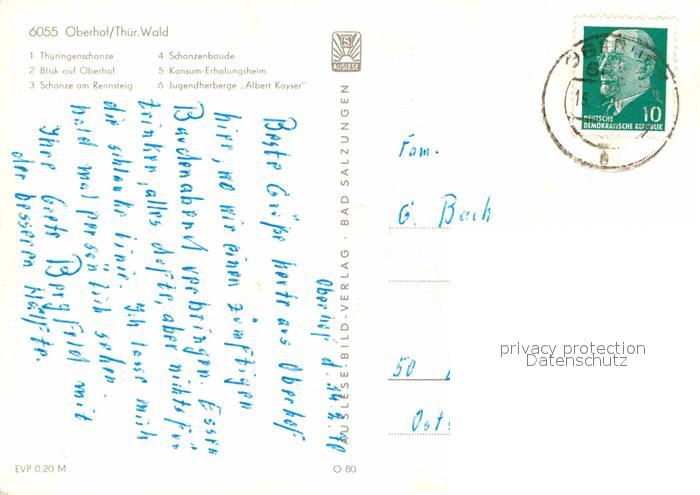 6055 Oberhof/Thür. Wald
1 Thüringenschanze
2 Blick auf Oberhof
3 Schanze am Rennsteig
4 Schanzenbaude
5 Konsum-Erholungsheim
6 Jugendherberge „Albert Kayser"
AUSLESE
AUSLESE-BILD-VERLAG · BAD SALZUNGEN
Oberhof, d.
Beste Grüße heute aus Oberhof
hier, wo wir einen zünftigen
Baudenabend verbringen. Essen
trinken, alles dufte, aber nichts für
die schlanke Linie. Ich lasse mich
bald mal persönlich sehen.
Ihre Grete Bergfeld mit
der besseren Hälfte.
EVP 0,20 M
O 80
10
DEUTSCHE
DEMOKRATISCHE REPUBLIK
OBERHOF
Fam.
G. Bach
50
privacy protection
Datenschutz